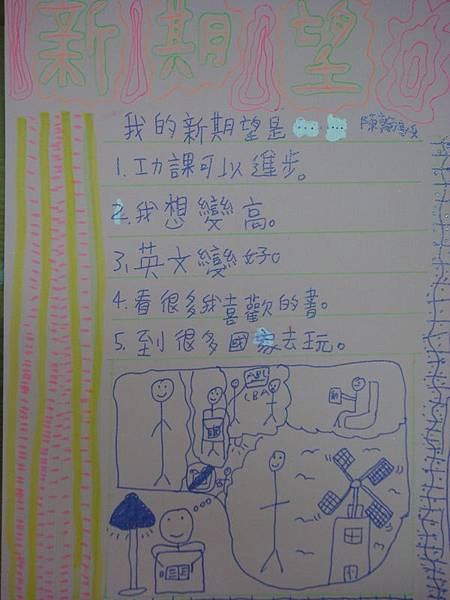 新期望
我的新期望是…… 陳
1.功課可以進步。
2.我想變高。
3.英文變好。
4.看很多我喜歡的書。
5.到很多國家去玩。
ABC
CBA